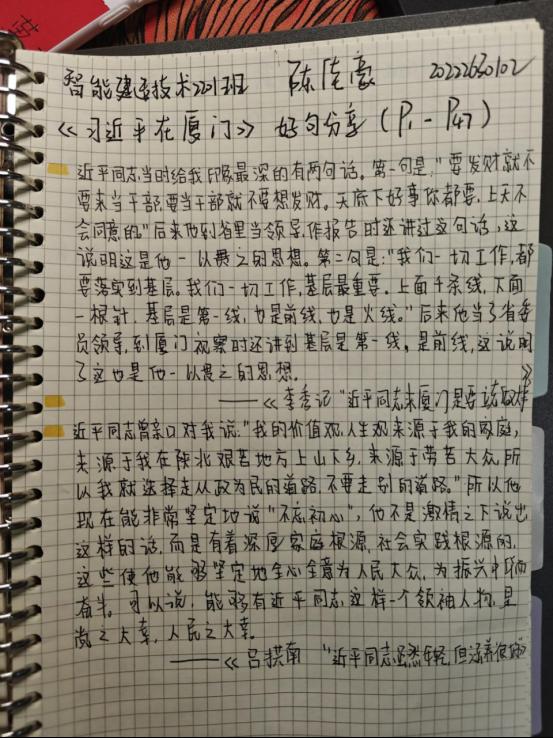 智能建造技术2201班 陈 豪 20222630102
《习近平在厦门》 好句分享 (P1-P47)
近平同志当时给我印象最深的有两句话。第一句是,"要发财就不
要来当干部,要当干部就不要想发财。天底下好事你都要,上天不
会同意的。"后来他到省里当领导,作报告时还讲过这句话,这
说明这是他一以贯之的思想。第二句是:"我们一切工作,都
要落实到基层。我们一切工作,基层最重要。上面千条线,下面
一根针。基层是第一线,也是前线,也是火线。"后来他当了省委
领导,到厦门视察时还讲到基层是第一线,是前线,这说明
了这也是他一以贯之的思想。
——《李秀记"近平同志来厦门是要 》
近平同志曾亲口对我说:"我的价值观,人生观来源于我的家庭,
来源于我在陕北艰苦地方上山下乡,来源于劳苦大众,所
以我就选择走从政为民的道路,不要走别的道路。"所以他
现在能非常坚定地说"不忘初心",他不是激情之下说出
这样的话,而是有着深厚家庭根源,社会实践根源的,
这些使他能够坚定地全心全意为人民大众,为振兴中华而
奋斗。可以说,能够有近平同志这样一个领袖人物,是
党之大幸,人民之大幸。
——《吕拱南 "近平同志虽然年轻,但涵养很好》